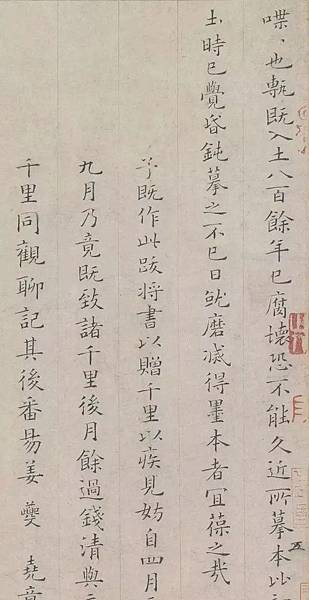 喋、也甎既入土八百餘年已腐壞恐不能久近所摹本比
土時已覺昏鈍摹之不已日就磨滅得墨本者宜葆之哉
予既作此跋將書以贈千里以疾見妨自四月至
九月乃竟既致諸千里後月餘過錢清與
千里同觀聊記其後番昜姜夔 堯章